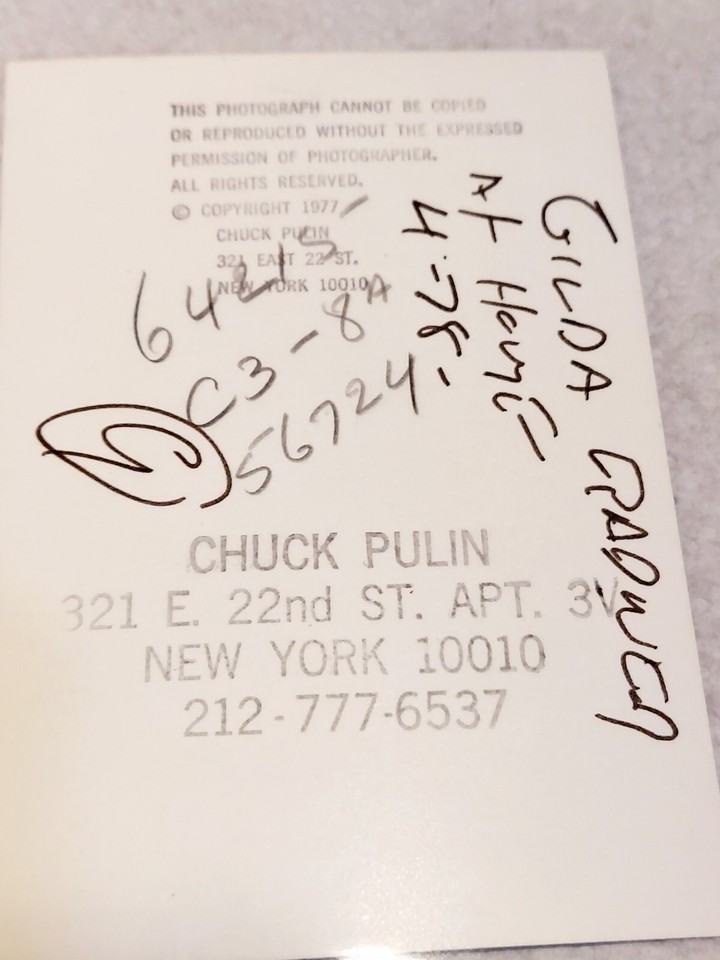 THIS PHOTOGRAPH CANNOT BE COPIED
OR REPRODUCED WITHOUT THE EXPRESSED
PERMISSION OF PHOTOGRAPHER.
ALL RIGHTS RESERVED.
© COPYRIGHT 1977
CHUCK PULIN
321 EAST 22 ST.
NEW YORK 10010
64215
C3-8A
56724
GILDA RADNER
At
4-78-
CHUCK PULIN
321 E. 22nd ST. APT. 3V
NEW YORK 10010
212-777-6537